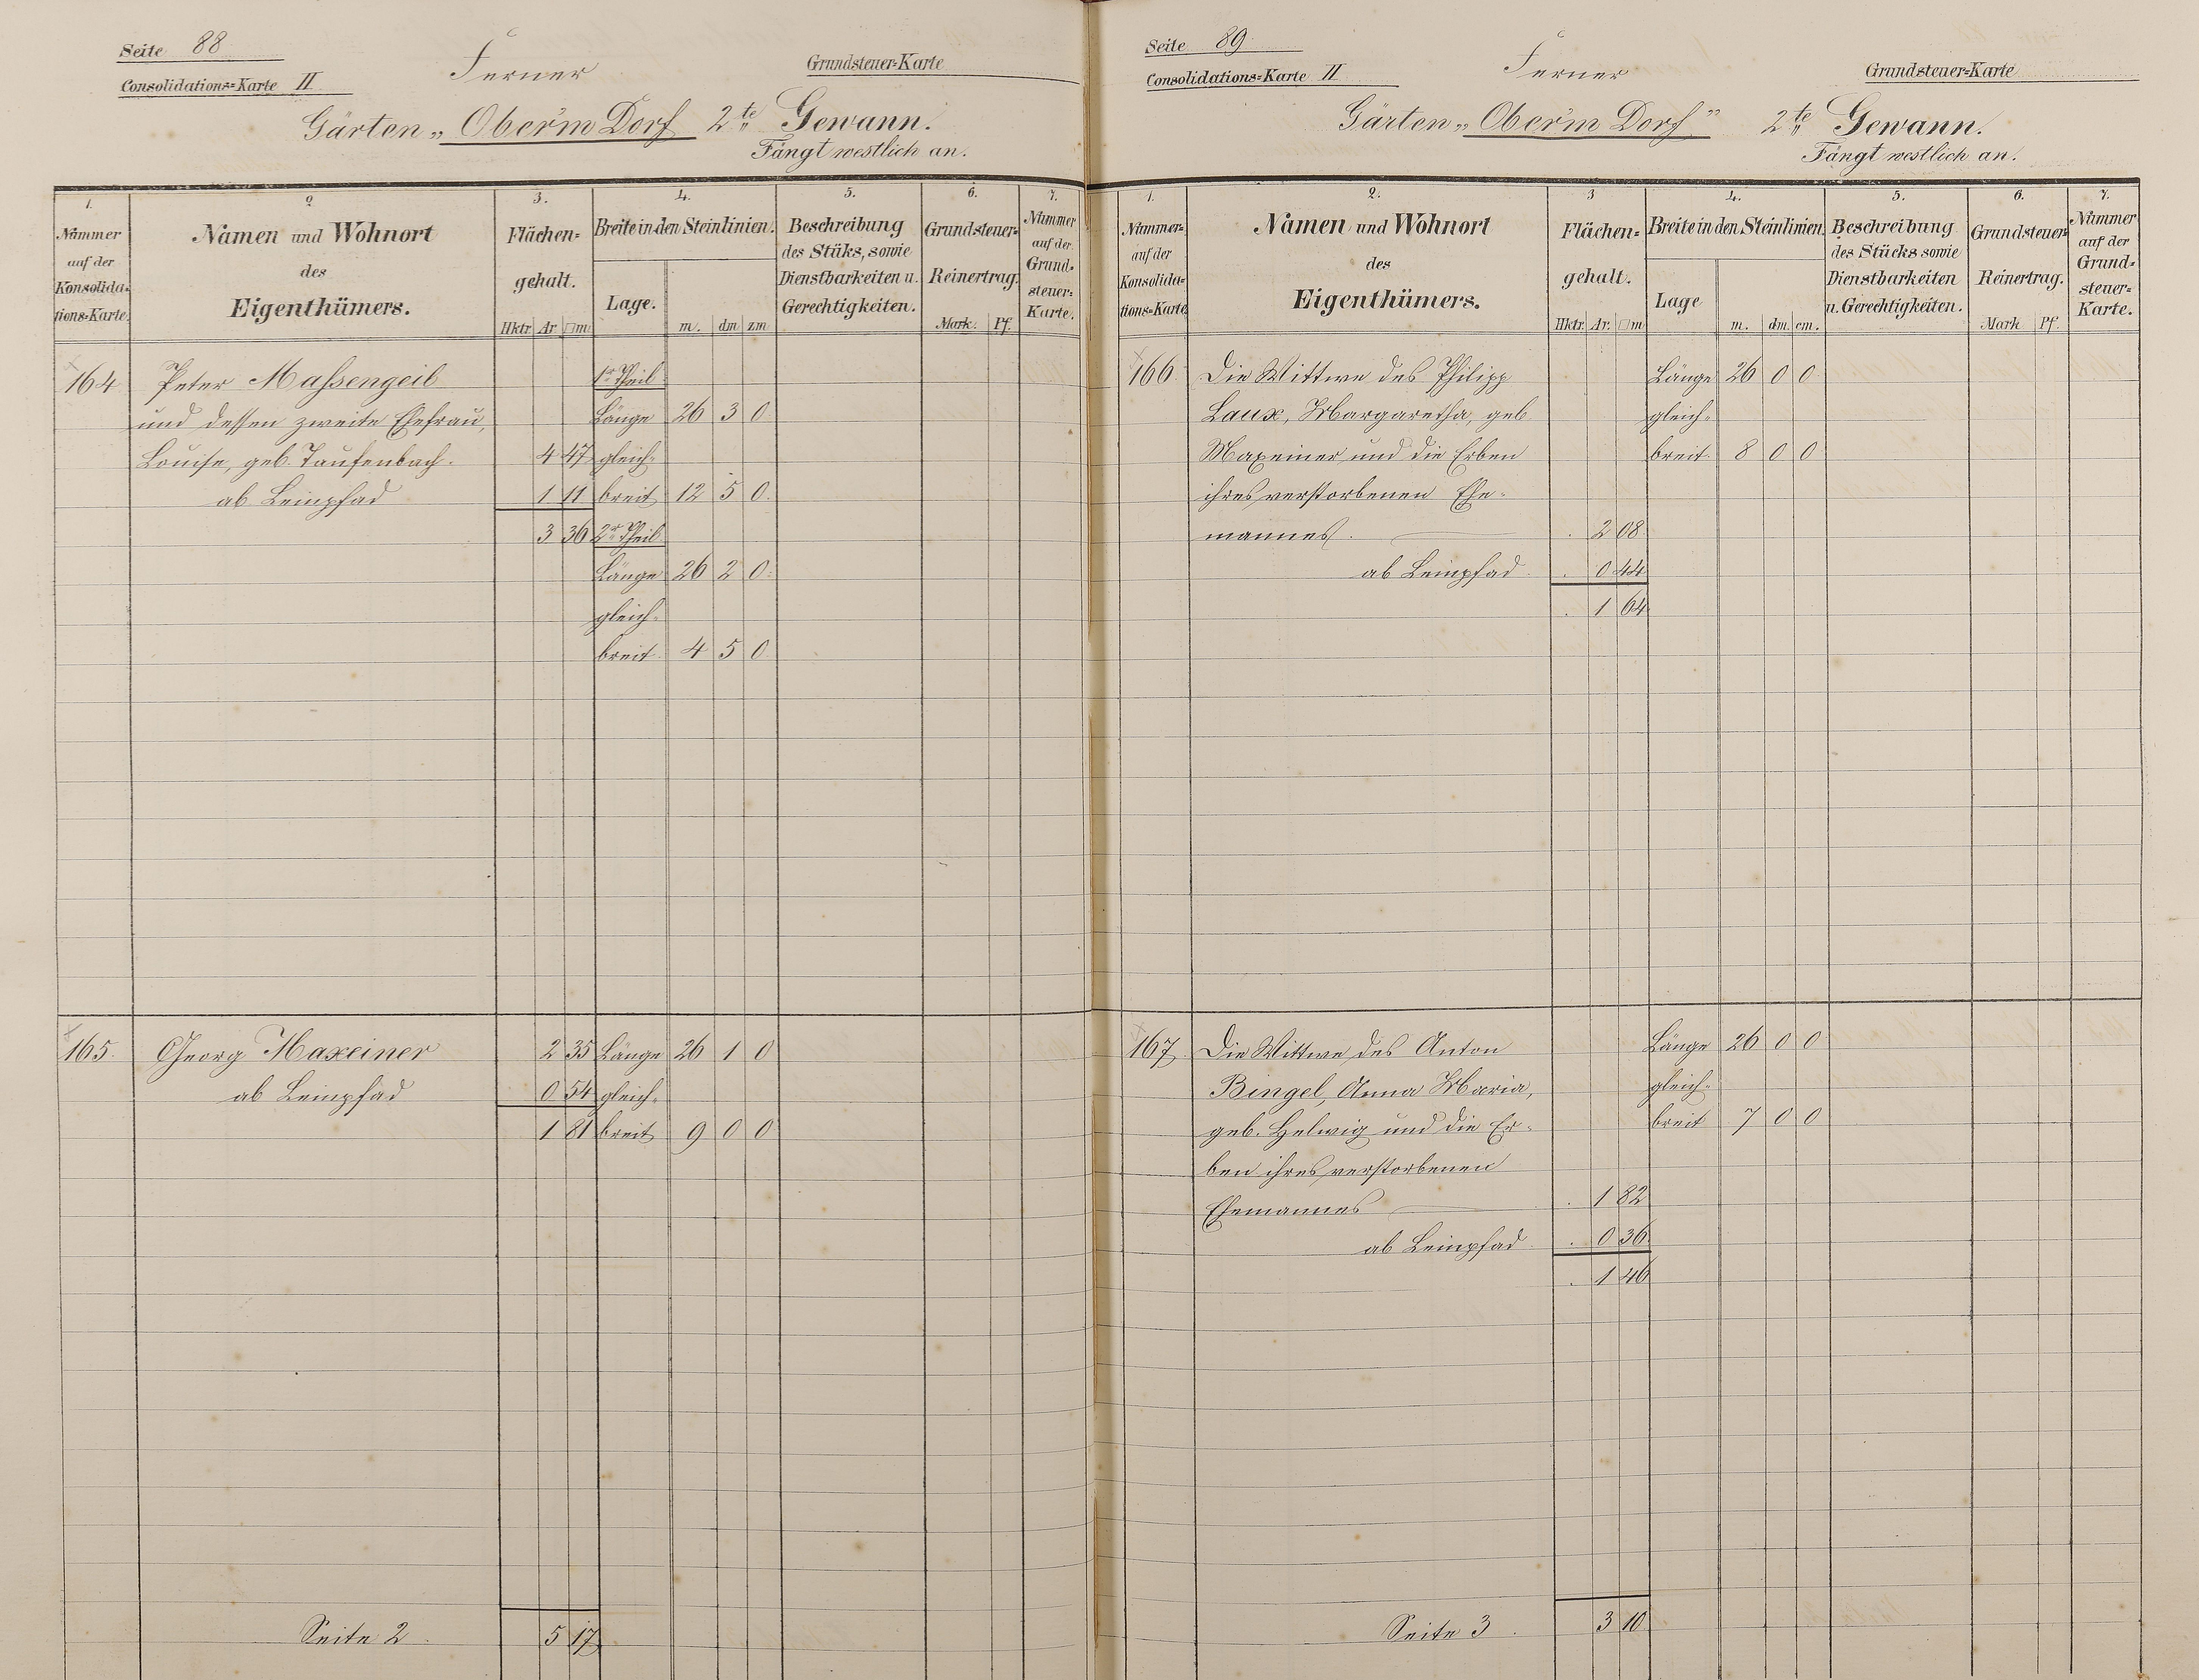 Seite 88
Ferner
Grundsteuer-Karte
Consolidations-Karte II
Gärten „Ober'm Dorf 2te Gewann.
Fängt westlich an.
1. 2 3. 4. 5. 6. 7.
Nummer auf der Konsolidations-Karte.
Namen und Wohnort des Eigenthümers.
Flächengehalt.
Hktr Ar □m
Breite in den Steinlinien.
Lage. m. dm zm
Beschreibung des Stüks, sowie Dienstbarkeiten u. Gerechtigkeiten.
Grundsteuer-Reinertrag.
Mark. Pf.
Nummer auf der Grundsteuer-Karte.
164 Peter Maßengeil 1r Theil
und dessen zweite Ehefrau, Länge 26 3 0
Louise, geb. Taufenbach. 4 47 gleich-
ab Leinpfad 1 11 breit 12 5 0
3 36 2r Theil
Länge 26 2 0
gleich-
breit 4 5 0
165. Georg Maxeiner 2 35 Länge 26 1 0
ab Leinpfad 0 54 gleich-
1 81 breit 9 0 0
Seite 2. 5 17
Seite 89
Ferner
Grundsteuer-Karte
Consolidations-Karte II
Gärten „Ober'm Dorf" 2te Gewann.
Fängt westlich an.
1. 2. 3 4. 5. 6. 7.
Nummer auf der Konsolidations-Karte
Namen und Wohnort des Eigenthümers.
Flächengehalt.
Hktr. Ar. □m
Breite in den Steinlinien.
Lage m. dm. cm.
Beschreibung des Stücks sowie Dienstbarkeiten u. Gerechtigkeiten.
Grundsteuer-Reinertrag.
Mark Pf.
Nummer auf der Grundsteuer-Karte.
166 Die Wittwe des Philipp Länge 26 0 0
Laux, Margaretha, geb gleich-
Maxeiner und die Erben breit 8 0 0
ihres verstorbenen Ehe-
mannes. 2 08
ab Leinpfad 0 44
1 64
167 Die Wittwe des Anton Länge 26 0 0
Bingel, Anna Maria, gleich-
geb. Helwig und die Er- breit 7 0 0
ben ihres verstorbenen
Ehemannes 1 82
ab Leinpfad 0 36
1 46
Seite 3. 3 10